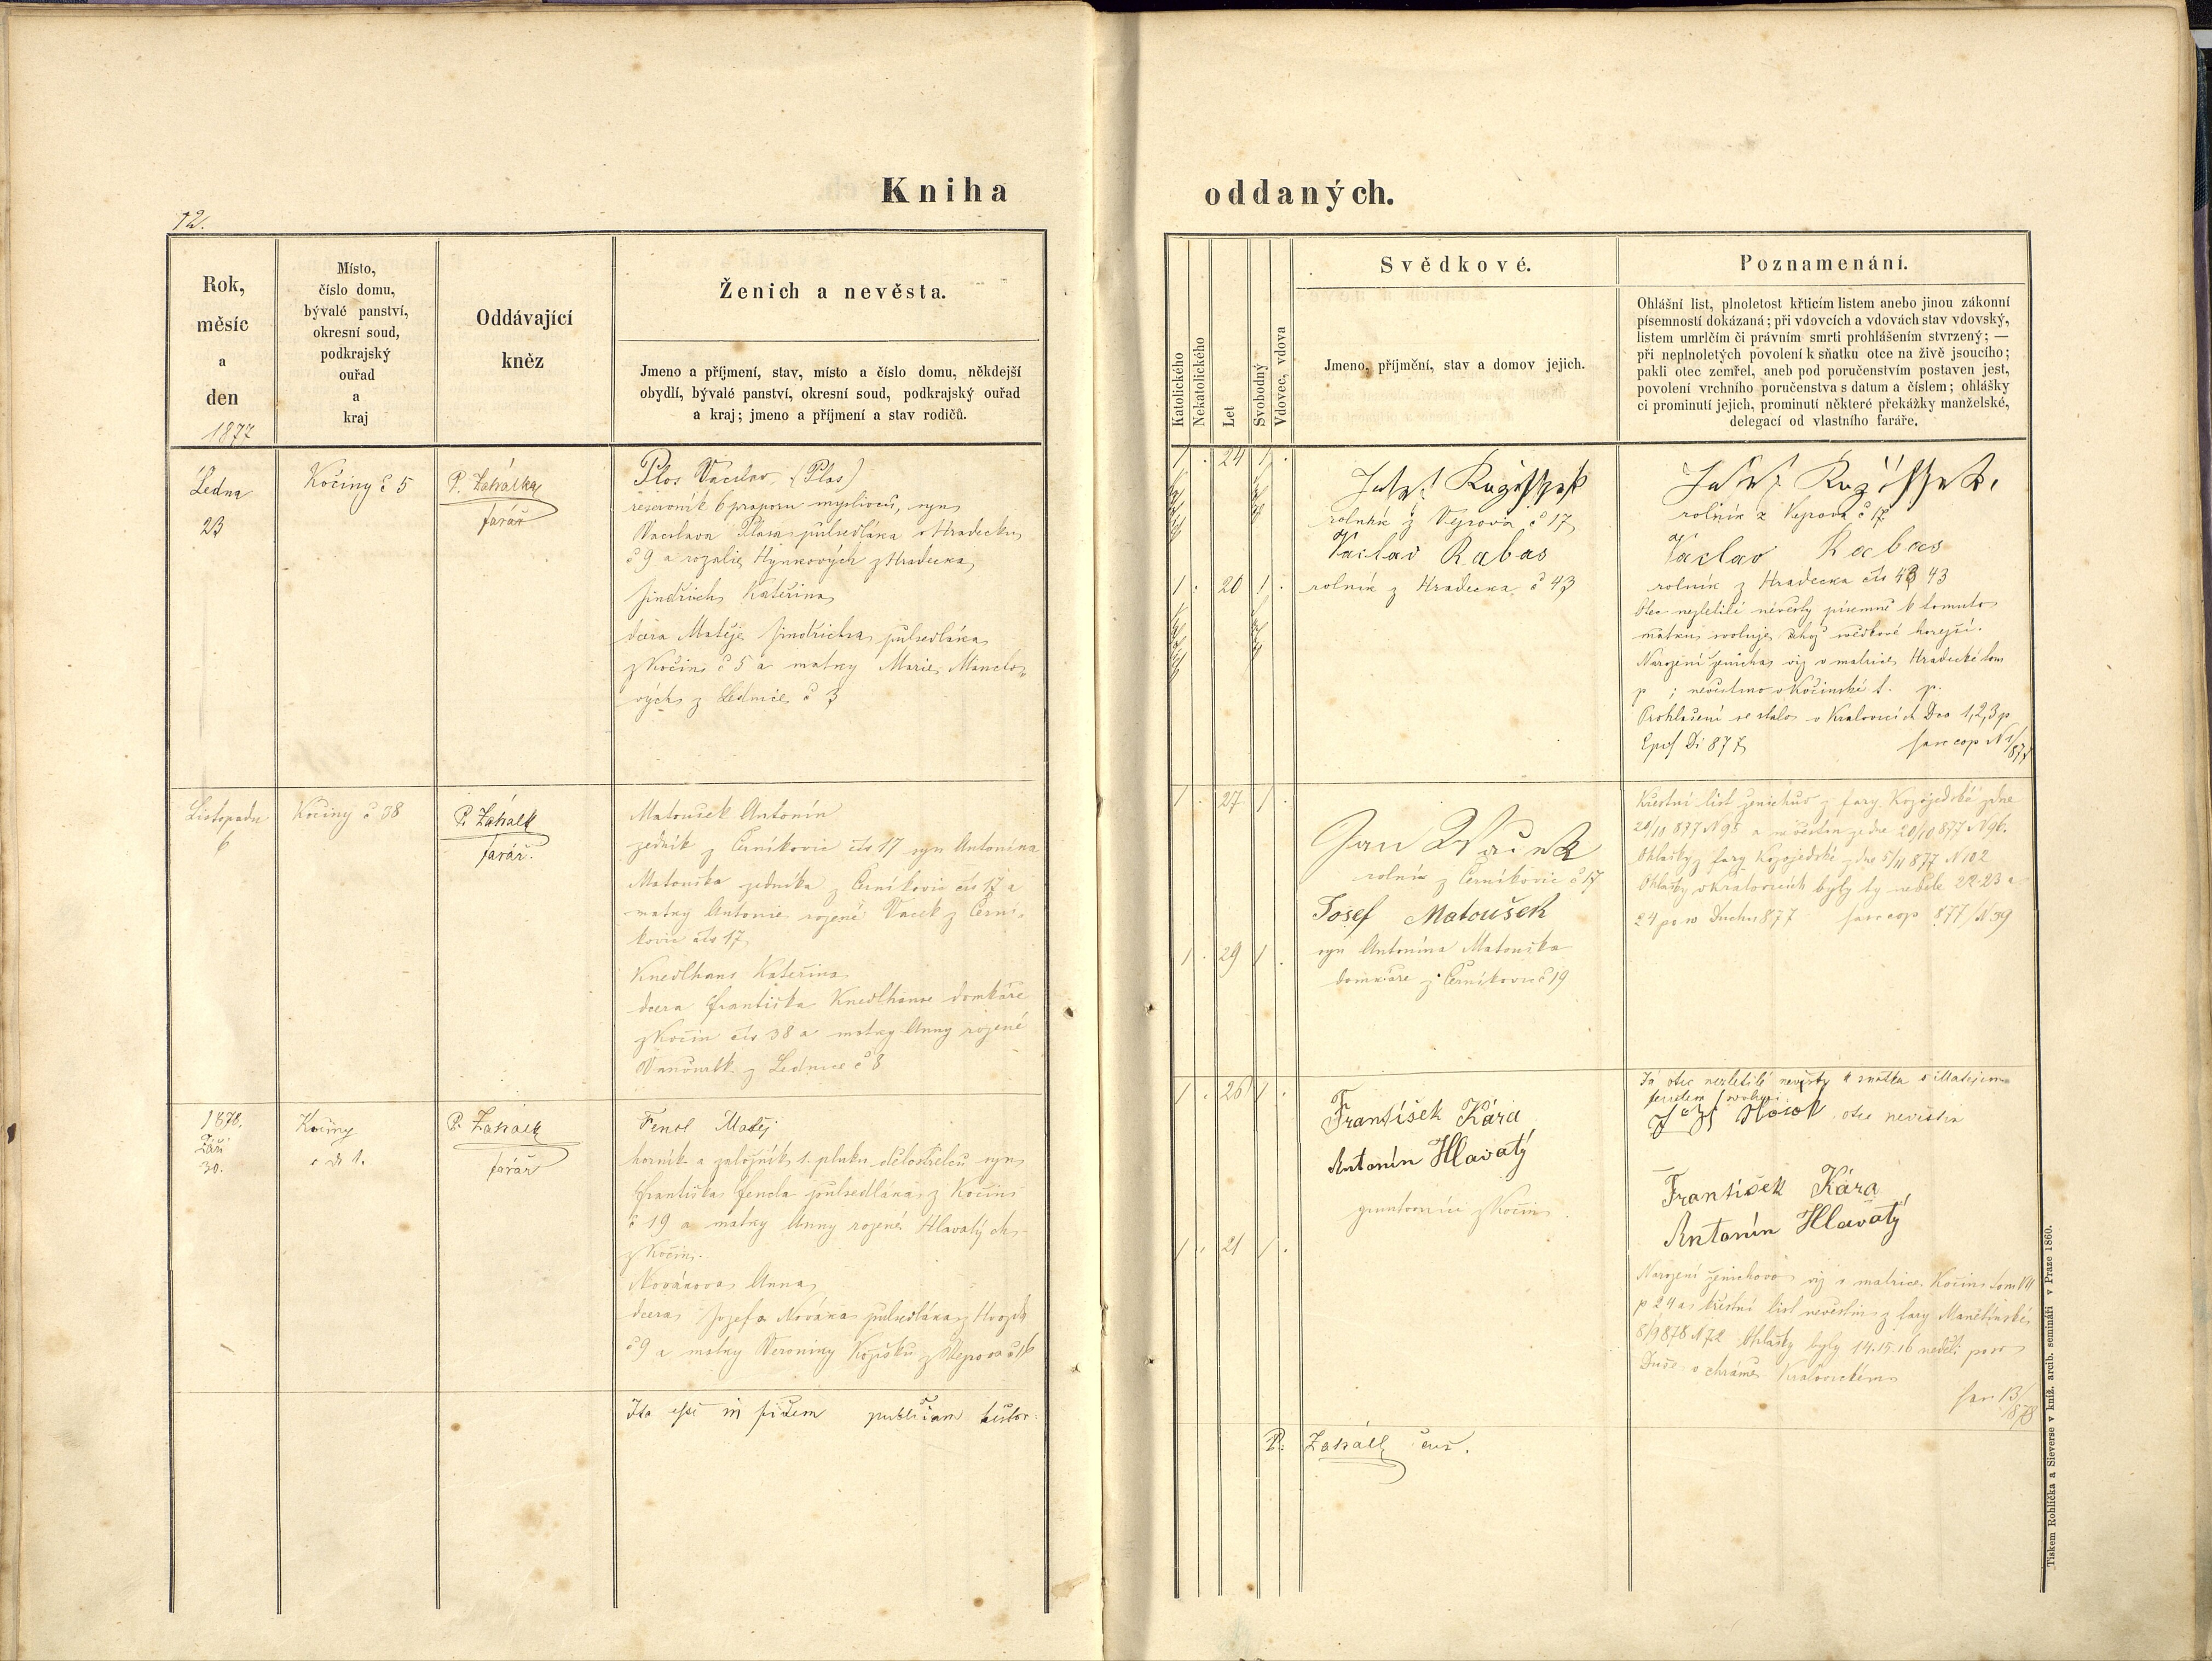 Kniha
oddaných.
12.
Rok,
měsíc
a
den
1877
Místo,
číslo domu,
bývalé panství,
okresní soud,
podkrajský
ouřad
a
kraj
Oddávající
kněz
Ženich a nevěsta.
Jmeno a příjmení, stav, místo a číslo domu, někdejší
obydlí, bývalé panství, okresní soud, podkrajský ouřad
a kraj; jmeno a příjmení a stav rodičů.
Ledna
23
Kočiny č 5
P. Zahálka
farář
Plos Václav (Plas)
reservník 6 praporu myslivců, syn
Vácslava Plasa půlsedláka v Hradecku
č 9 a rozalie Hynkových z Hradecka
Jindřich Kateřina
dcera Matěje Jindřicha půlsedláka
z Kočin č 5 a matky Marie
vých z Lednice č 3
Listopadu
6
Kočiny č 38
P. Zahálk
farář.
Matoušek Antonín
zedník z Černíkovic čís 17 syn Antonína
Matouška zedníka z Černíkovic čís 17 a
matky Antonie rojené Vacek z Černí-
kovic čís 17
Knedlhans Kateřina
dcera Františka Knedlhanse domkáře
z Kočin čís 38 a matky Anny rojené
z Lednice č 8
1878.
Září
30.
Kočiny
č 1.
P. Zahálk
farář
Fencl Matěj
horník a záložník 1. pluku dělostřelců syn
Františka Fencla pulsedláka z Kočin
č 19 a matky Anny rojené Hlavatých
z Kočin.
Novákova Anna
dcera Jozefa Nováka pulsedláka z Hvozda
č 9 a matky Veroniky z Vejprova
Ita esse in fidem publicam testor:
Katolického
Nekatolického
Let
Svobodný
Vdovec, vdova
Svědkové.
Jmeno, příjmění, stav a domov jejich.
Poznamenání.
Ohlášní list, plnoletost křticím listem anebo jinou zákonní
písemností dokázaná; při vdovcích a vdovách stav vdovský,
listem umrlčím či právním smrti prohlášením stvrzený; —
při neplnoletých povolení k sňatku otce na živě jsoucího;
pakli otec zemřel, aneb pod poručenstvím postaven jest,
povolení vrchního poručenstva s datum a číslem; ohlášky
ci prominutí jejich, prominutí některé překážky manželské,
delegací od vlastního faráře.
1 . 24 1 .
rolník z Vejprova č 17
Václav Rabas
1 . 20 1 .
rolník z Hradecka č 43
rolník z Vejprova č 17
Václav Rabas
rolník z Hradecka čís 43
Otec nezletilé nevěsty písemně k tomuto
sňatku svoluje, svědkové horejší.
Narození ženicha viz v matrice Hradecké tom
p ; nevěstino v Kočinské t. p.
Prohlášení se stalo v Kralovicích Dom 1,2,3 p
Epof Di 877
fasc cop N 1/877
1 . 27 1 .
Jan
rolník z Černíkovic č 17
Josef Matoušek
1 . 29 1 .
syn Antonína Matouška
domkáře z Černíkovic č 19
Křestní list ženichův z fary Kozojedské zdne
20/10 877 N 95 a nevěstin ze dne 20/10 877 N 96.
Ohlášky z fary Kozojedské z dne 5/11 877 N 102
Ohlášky v Kralovicích byly ty neděle 22 23 a
24 po sv Duchu 877 fasc cop 877/N 39
1 . 26 1 .
František Kára
Antonín Hlavatý
gruntovníci z Kočin
1 . 21 1 .
Já otec nezletilé nevěsty k sňatku s Matějem
Fenclem svoluji
otec nevěstin
František Kára
Antonín Hlavatý
Narození ženichovo viz v matrice Kočin tom VII
p 24 a křestní list nevěstin z fary Manětínské
8/9 878 N 72 Ohlášky byly 14.15.16 neděli po sv
Duše v chrámě Kralovickém
fasc 13/878
P. Zahálk
Tiskem Rohlíčka a Sieverse v kníž. arcib. semináři v Praze 1860.